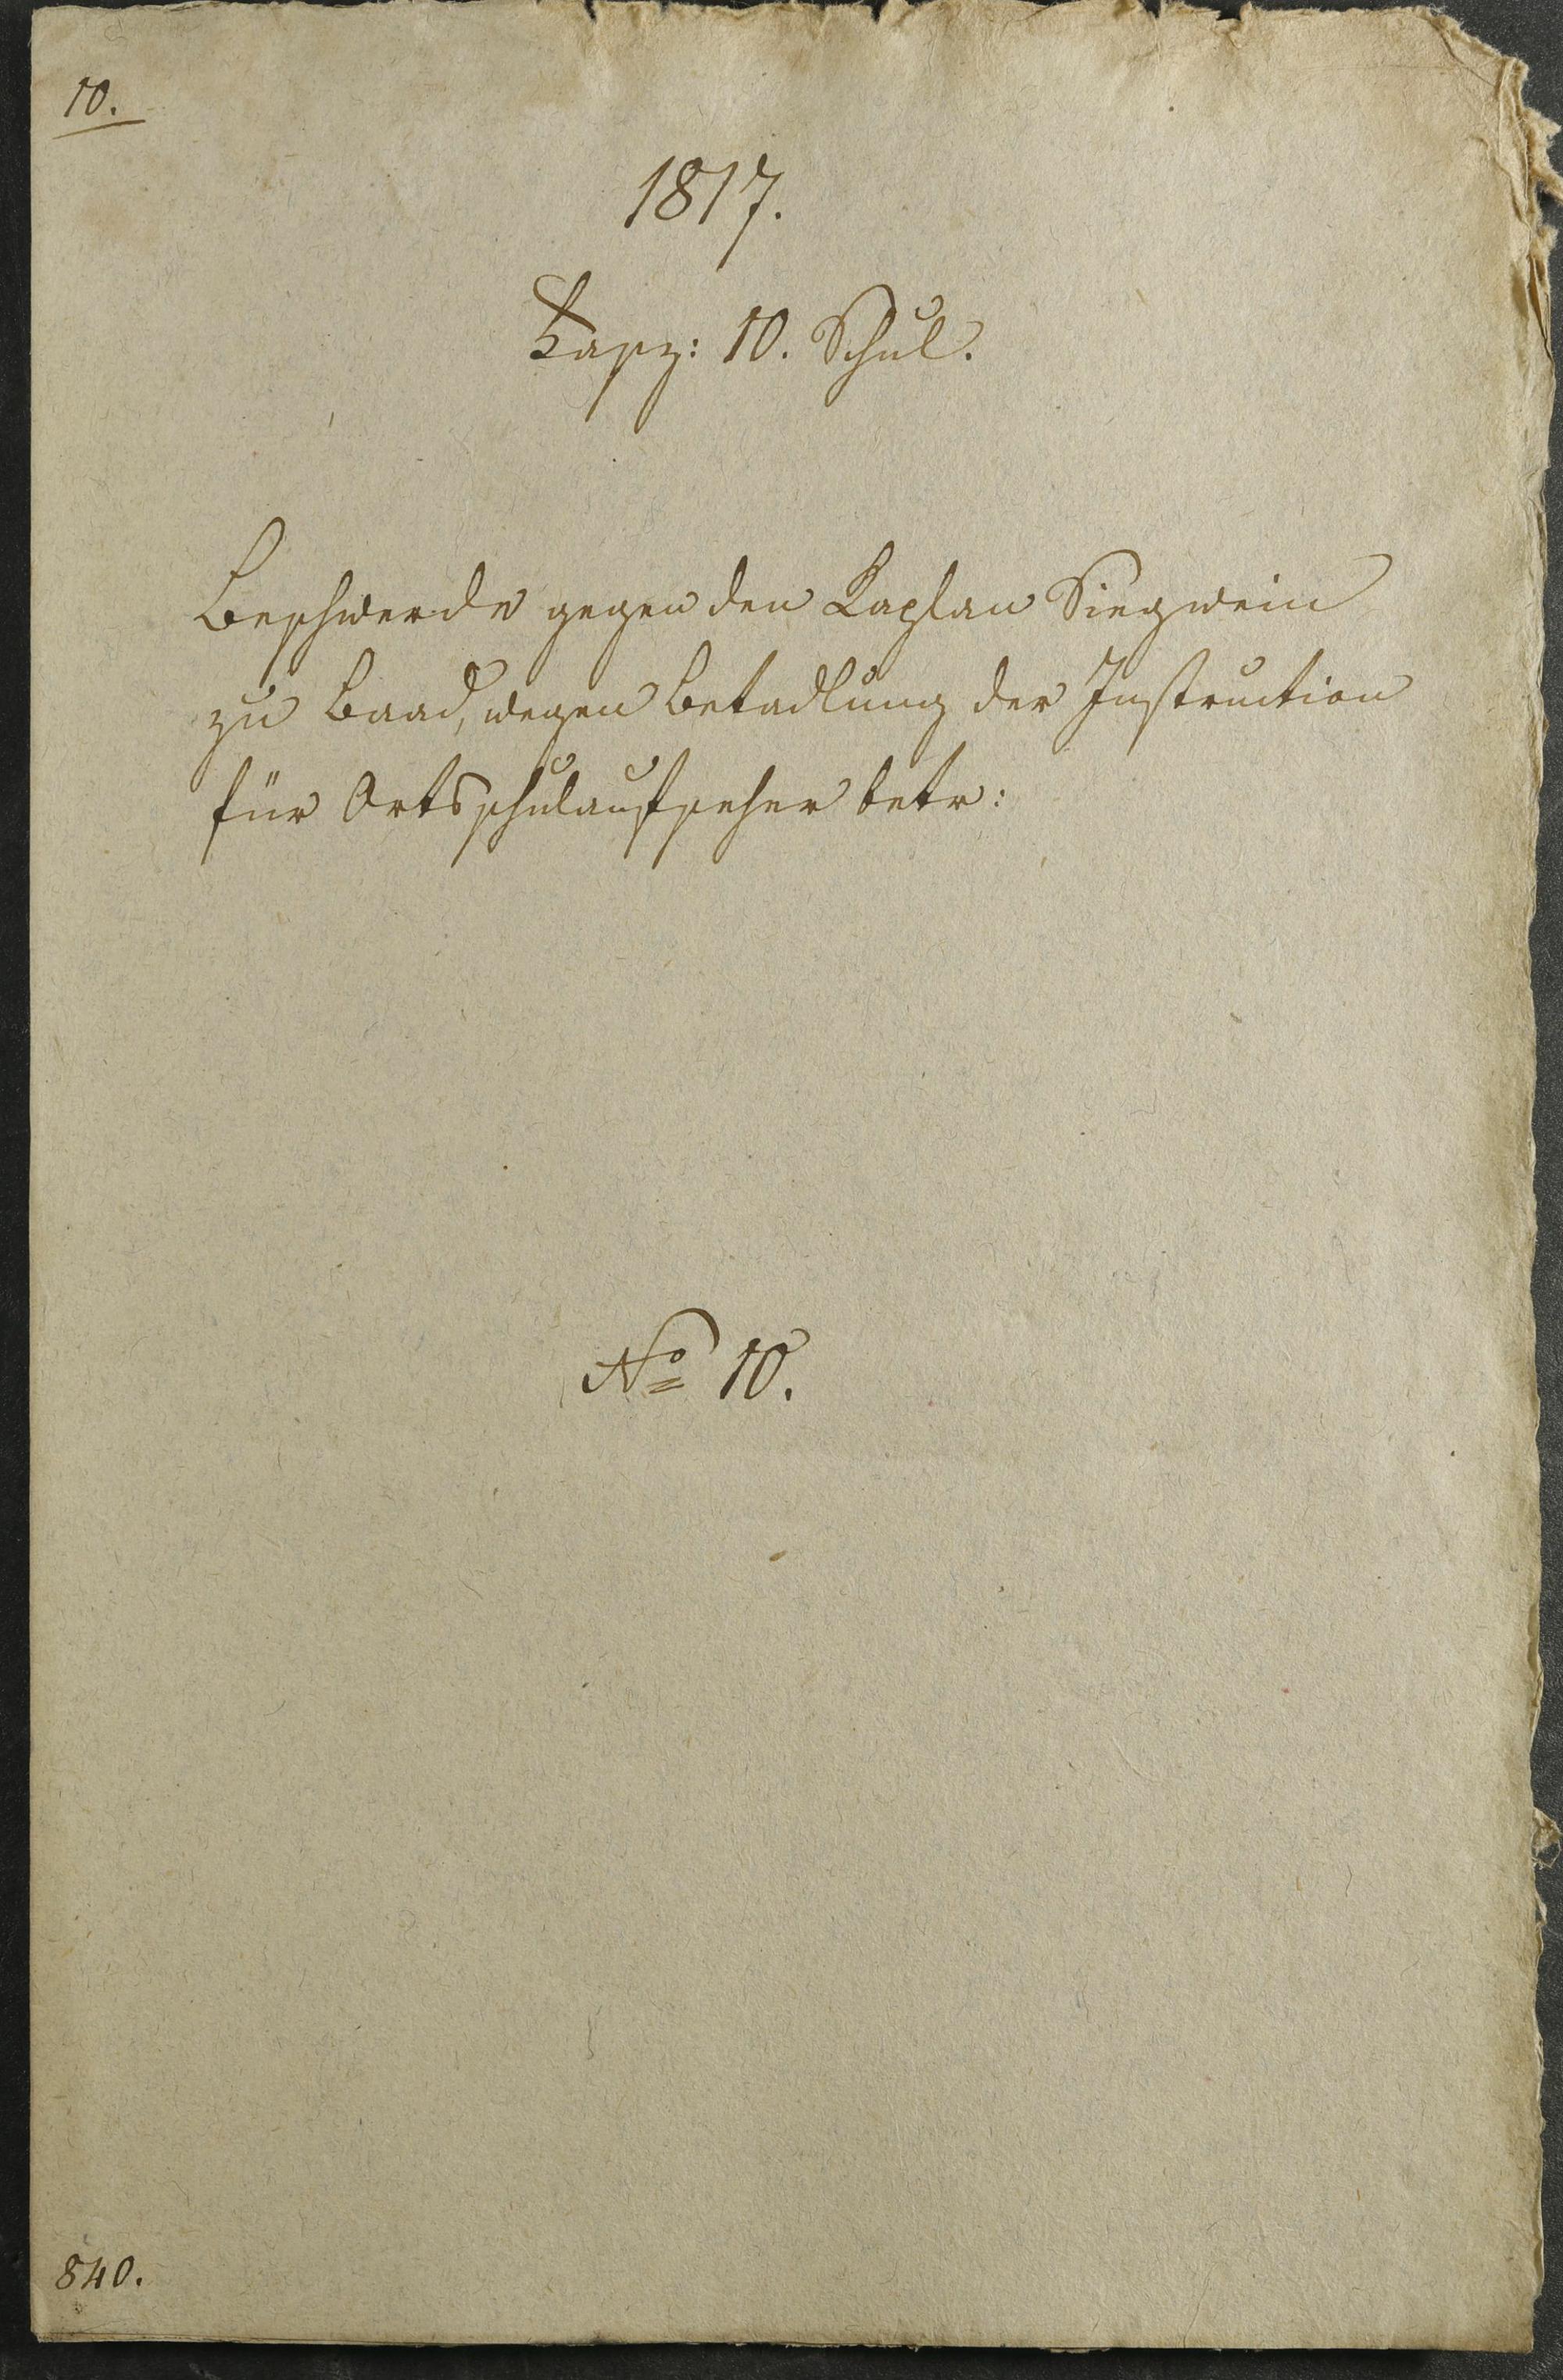 10.
1817.
Fasz: 10. Schul.
Beschwerde gegen den Kaplan Siegwein
zu Baad, wegen Betadlung der Instruction
für Ortsschulaufseher betr:
No 10.
840.